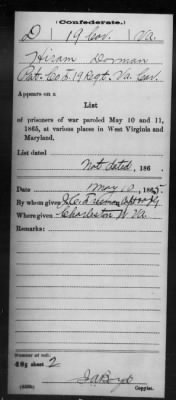 (Confederate.)
D 19 Cav. Va.
Hiram Dorman
Pvt. Co. D 19 Regt. Va. Cav.
Appears on a
List
of prisoners of war paroled May 10 and 11,
1865, at various places in West Virginia and
Maryland.
List dated
Not dated, 186 .
Date May 10, 1865.
By whom given
Where given Charleston W. Va.
Remarks:
Number of roll:
sheet 2
J A Boyd
Copyist.